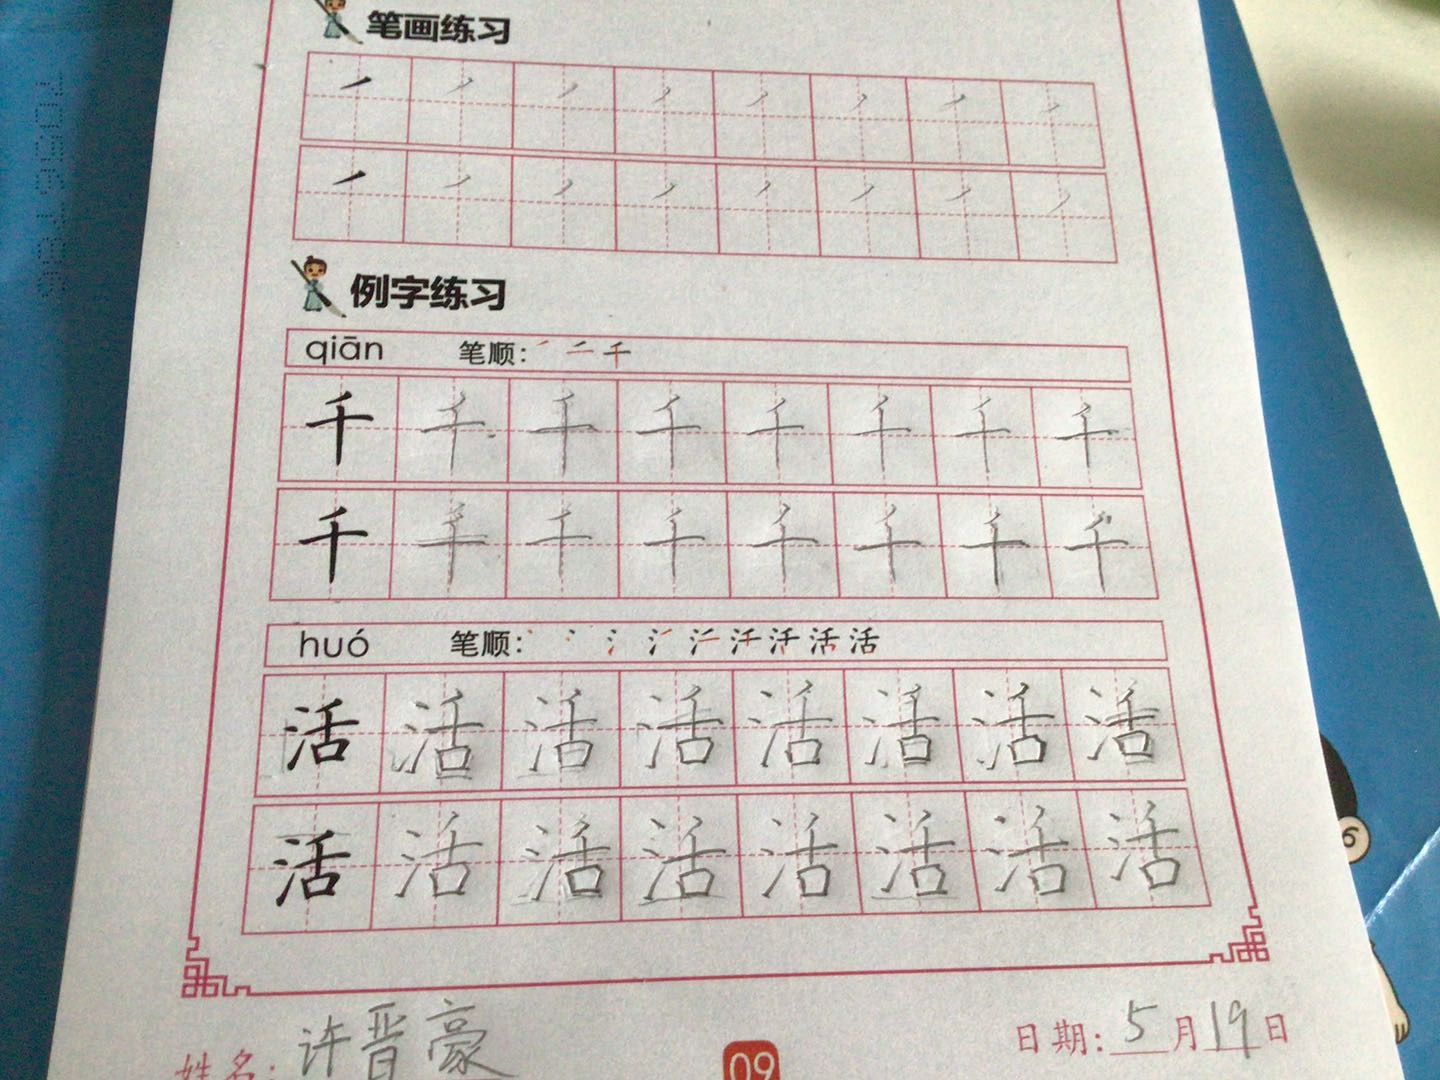 笔画练习
㇒ ㇒ ㇒ ㇒ ㇒ ㇒ ㇒ ㇒
㇒ ㇒ ㇒ ㇒ ㇒ ㇒ ㇒ ㇒
例字练习
qiān 笔顺: ㇒ 二 千
千 千 千 千 千 千 千 千
千 千 千 千 千 千 千 千
huó 笔顺:
活 活 活 活 活 活 活 活
活 活 活 活 活 活 活 活
姓名: 许晋豪 09 日期: 5 月 19 日
6